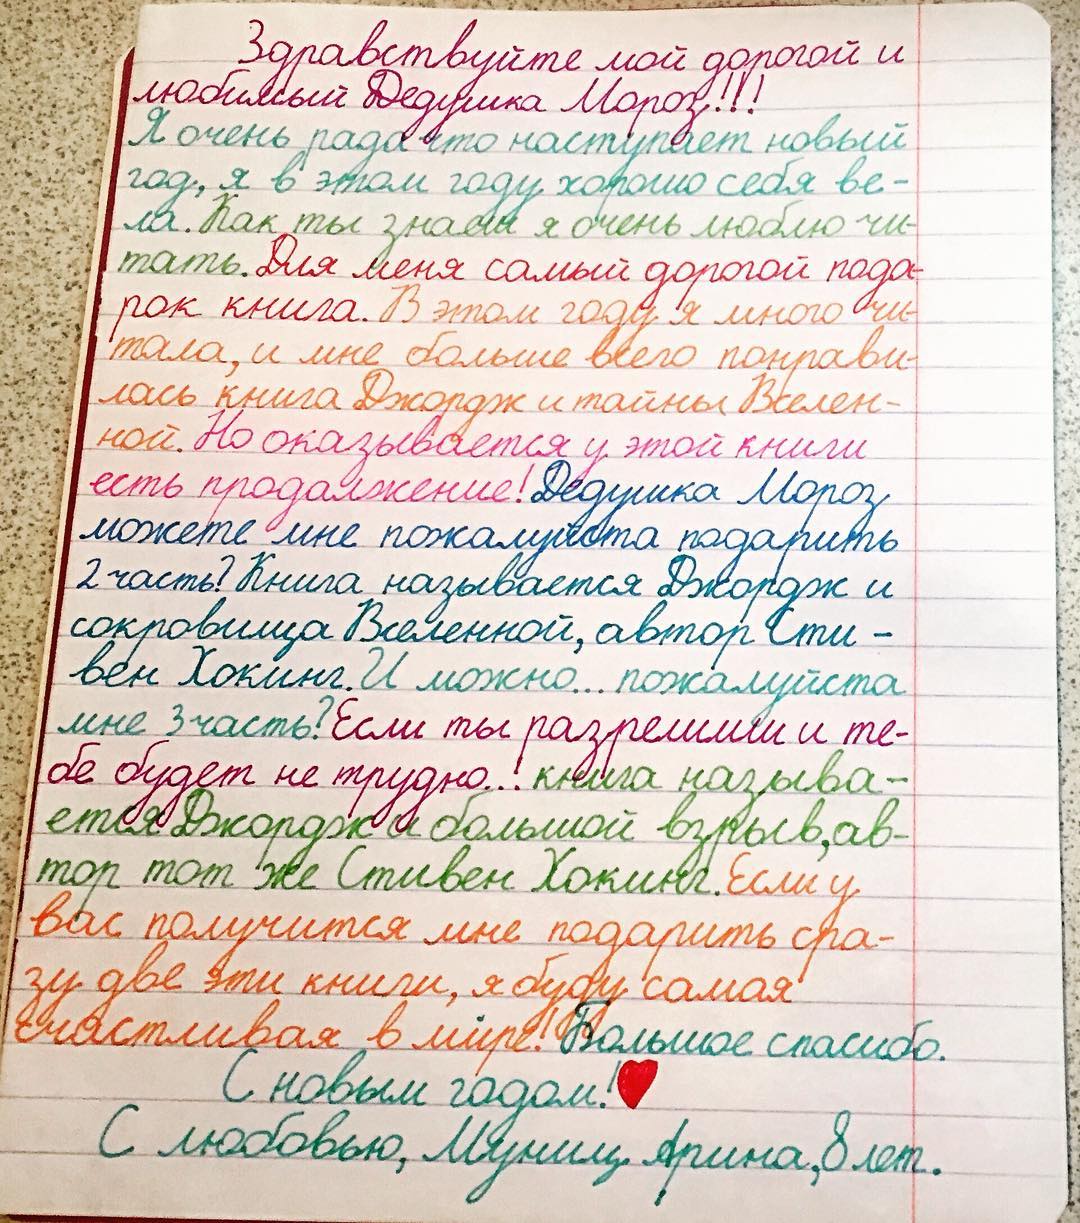 Здравствуйте мой дорогой и
любимый Дедушка Мороз!!!
Я очень рада что наступает новый
год, я в этом году хорошо себя ве-
ла. Как ты знаеш я очень люблю чи-
тать. Для меня самый дорогой пода-
рок книга. В этом году я много чи-
тала, и мне больше всего понрави-
лась книга Джордж и тайны Вселен-
ной. Но оказывается у этой книги
есть продалжение! Дедушка Мороз
можете мне пожалуйста подарить
2 часть? Книга называется Джордж и
сокровища Вселенной, автор Сти-
вен Хокинг. И можно... пожалуйста
мне 3 часть? Если ты разрешиш и те-
бе будет не трудно...! книга называ-
ется Джордж и большой взрыв, ав-
тор тот же Стивен Хокинг. Если у
вас получится мне подарить сра-
зу две эти книги, я буду самая
счастливая в мире! Большое спасибо.
С новым годом!
С любовью, Муниц Арина, 8 лет.